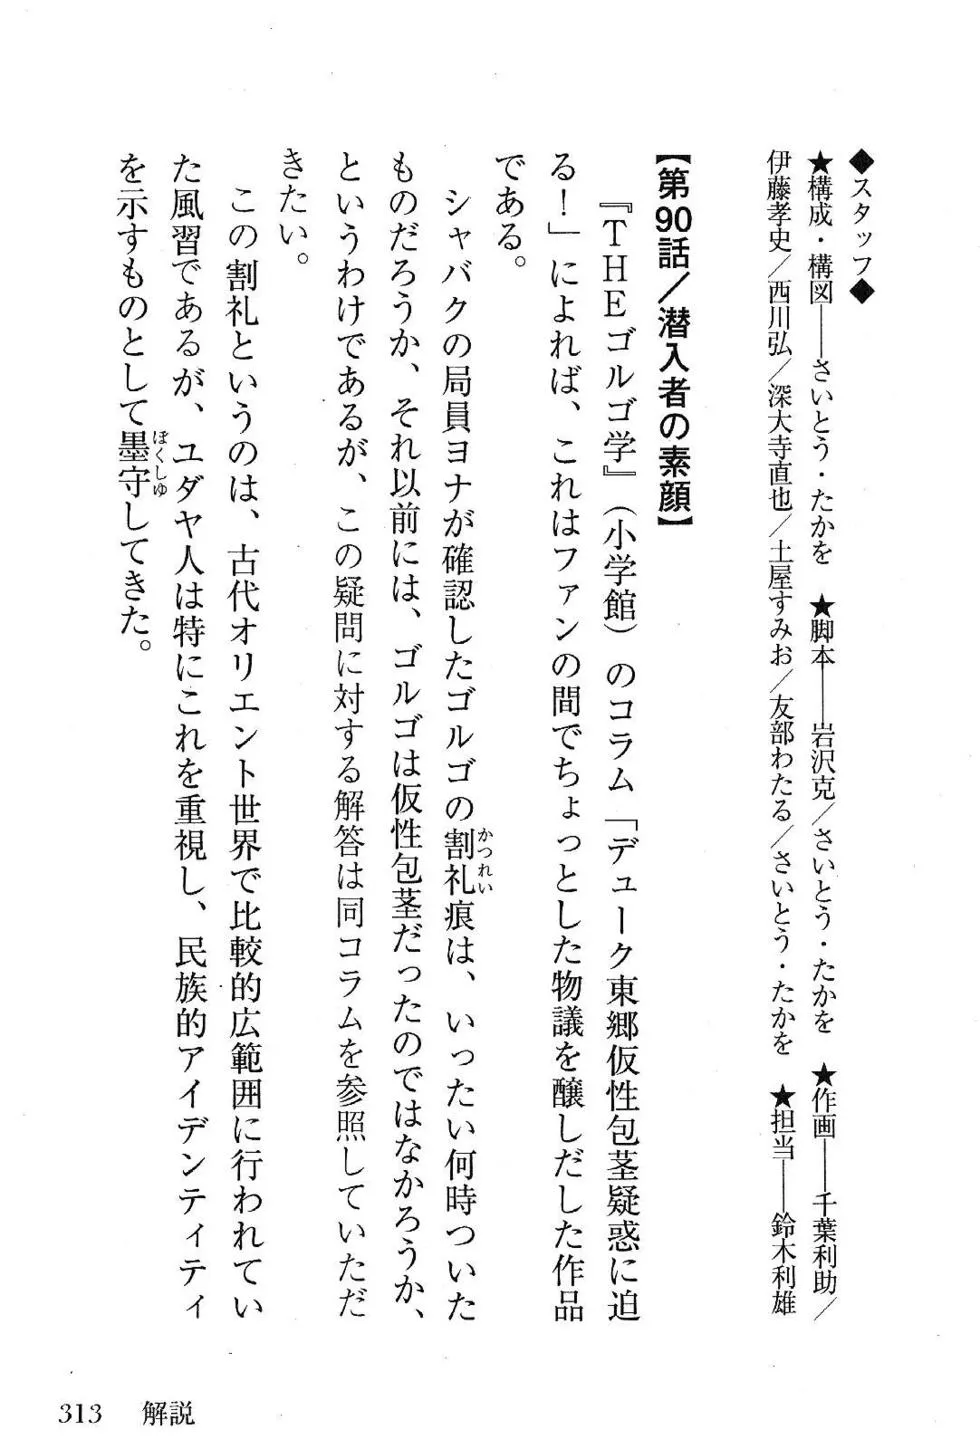 ◆スタッフ◆
★構成・構図——さいとう・たかを　★脚本——岩沢克／さいとう・たかを　★作画——千葉利助／
伊藤孝史／西川弘／深大寺直也／土屋すみお／友部わたる／さいとう・たかを　★担当——鈴木利雄
【第90話／潜入者の素顔】
『THEゴルゴ学』（小学館）のコラム「デューク東郷仮性包茎疑惑に迫
る！」によれば、これはファンの間でちょっとした物議を醸しだした作品
である。
シャバクの局員ヨナが確認したゴルゴの割礼痕は、いったい何時ついた
かつれい
ものだろうか、それ以前には、ゴルゴは仮性包茎だったのではなかろうか、
というわけであるが、この疑問に対する解答は同コラムを参照していただ
きたい。
この割礼というのは、古代オリエント世界で比較的広範囲に行われてい
た風習であるが、ユダヤ人は特にこれを重視し、民族的アイデンティティ
を示すものとして墨守してきた。
ぼくしゆ
313　解説